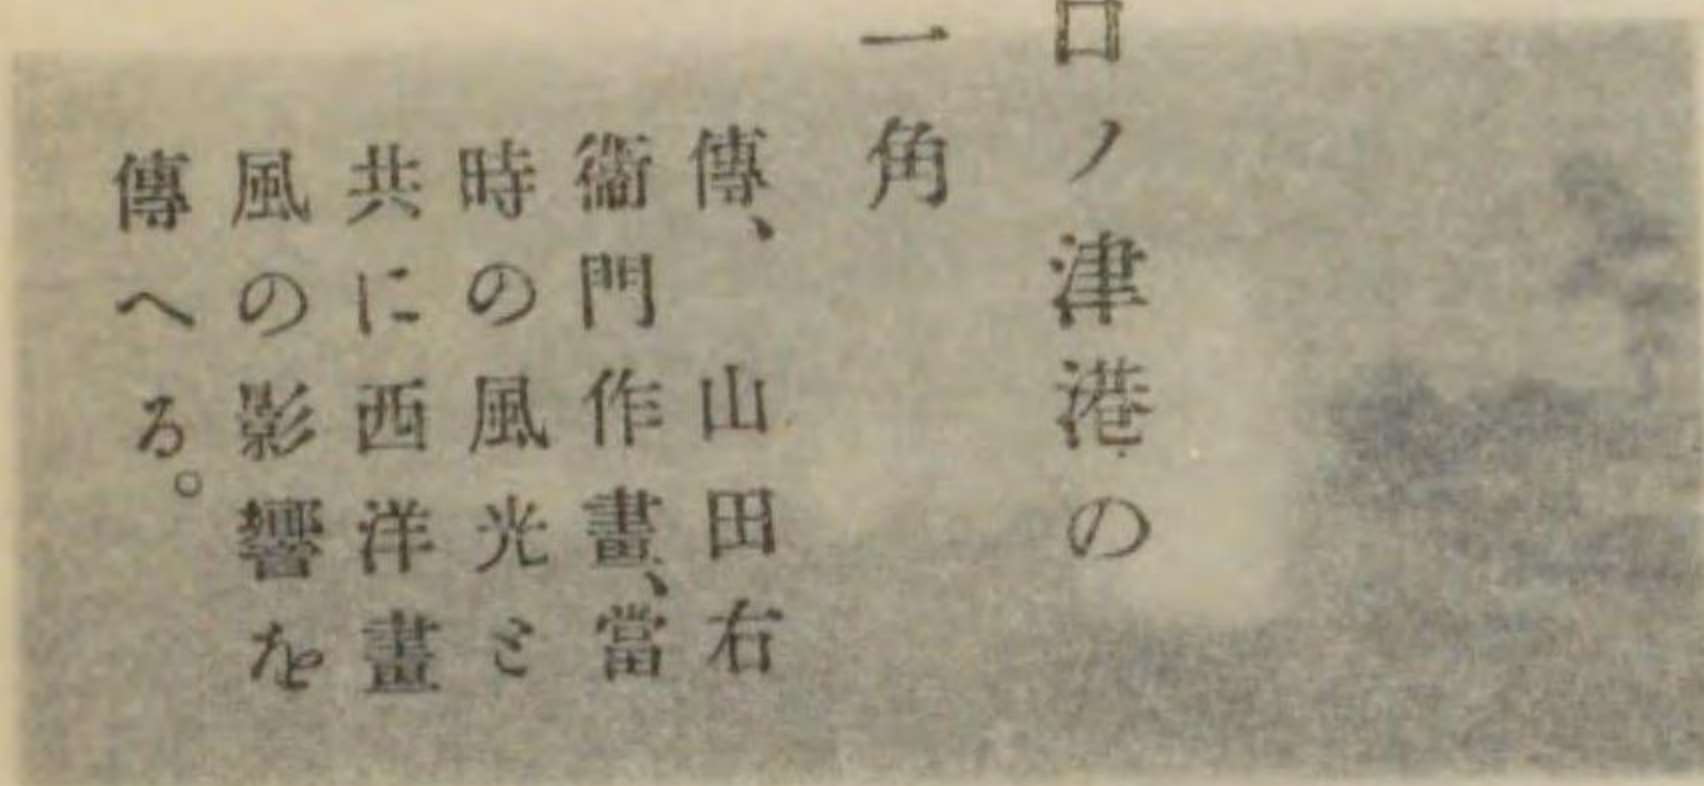 口ノ津港の
一角
傳、山田右
衞門作畫、當
時の風光と
共に西洋畫
風の影響を
傳へる。